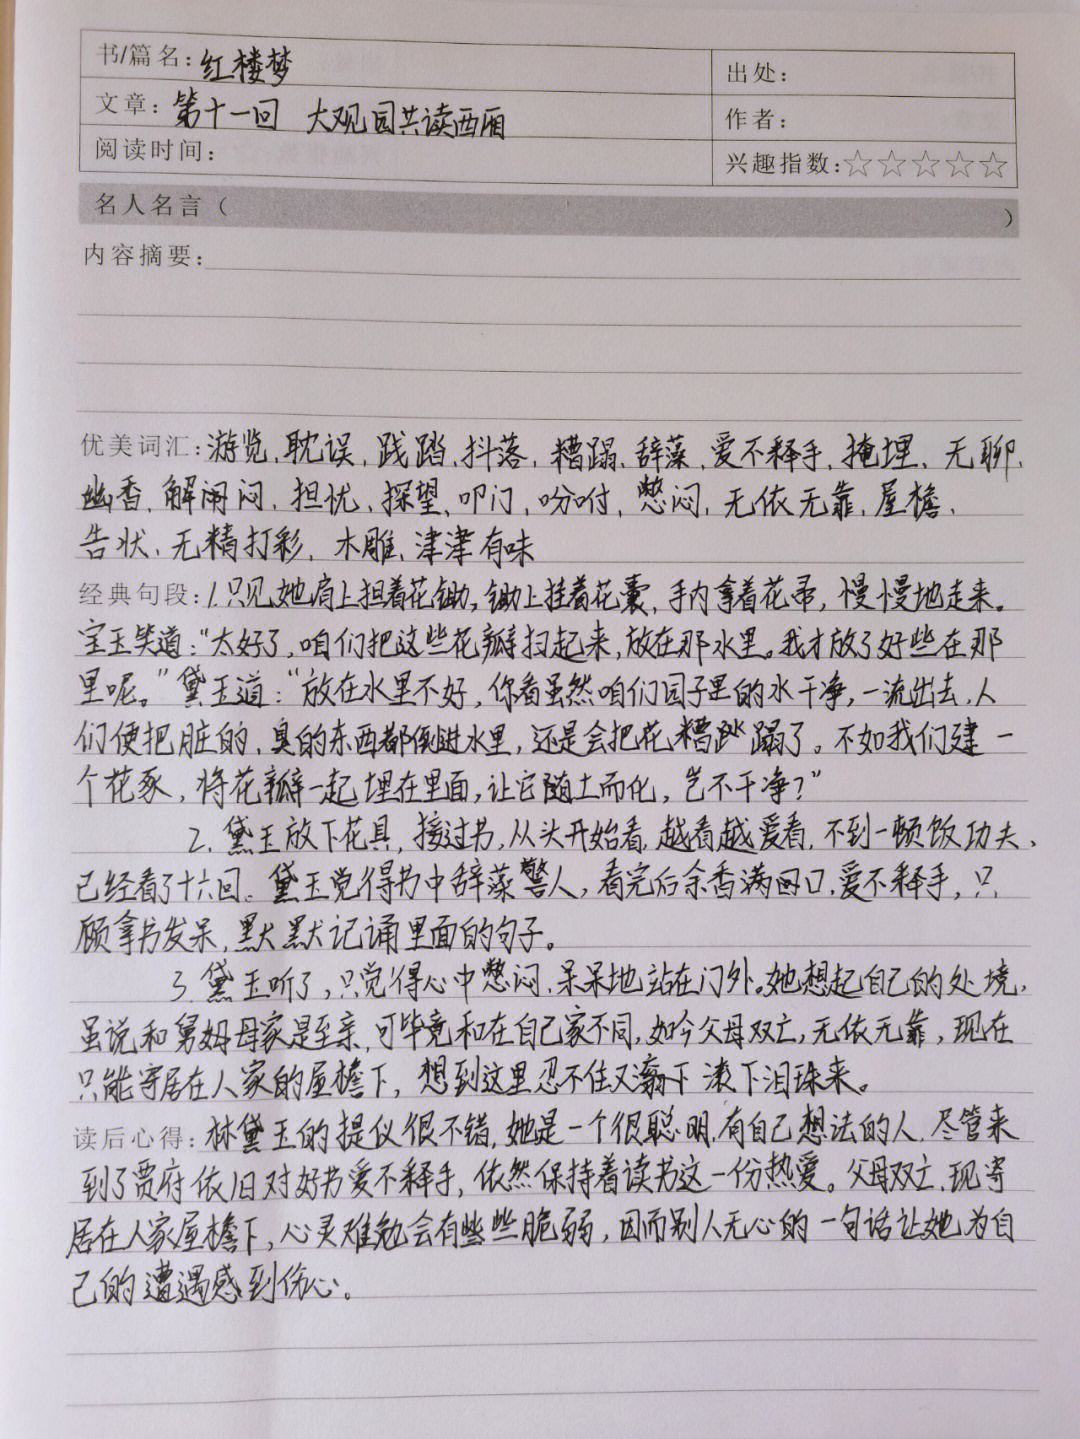 书/篇名: 红楼梦 出处:
文章: 第十一回 大观园共读西厢 作者:
阅读时间: 兴趣指数:☆☆☆☆☆
名人名言（ ）
内容摘要:
优美词汇: 游览、耽误、践踏、抖落、糟蹋、辞藻、爱不释手、掩埋、无聊、
幽香、解闹闷、担忧、探望、叩门、吩咐、憋闷、无依无靠、屋檐、
告状、无精打彩、木雕、津津有味
经典句段: 1.只见她肩上担着花锄，锄上挂着花囊，手内拿着花帚，慢慢地走来。
宝玉笑道：“太好了，咱们把这些花瓣扫起来，放在那水里。我才放了好些在那
里呢。”黛玉道：“放在水里不好，你看虽然咱们园子里的水干净，一流出去，人
们便把脏的、臭的东西都倒进水里，还是会把花糟蹋了。不如我们建一
个花冢，将花瓣一起埋在里面，让它随土而化，岂不干净？”
2.黛玉放下花具，接过书，从头开始看，越看越爱看，不到一顿饭功夫、
已经看了十六回。黛玉觉得书中辞藻警人，看完后余香满口，爱不释手，只
顾拿书发呆，默默记诵里面的句子。
3.黛玉听了，只觉得心中憋闷，呆呆地站在门外。她想起自己的处境，
虽说和舅姆母家是至亲，可毕竟和在自己家不同，如今父母双亡，无依无靠，现在
只能寄居在人家的屋檐下，想到这里忍不住又滚下泪珠来。
读后心得: 林黛玉的提仪很不错，她是一个很聪明，有自己想法的人，尽管来
到了贾府依旧对好书爱不释手，依然保持着读书这一份热爱。父母双亡，现寄
居在人家屋檐下，心灵难勉会有些些脆弱，因而别人无心的一句话让她为自
己的遭遇感到伤心。